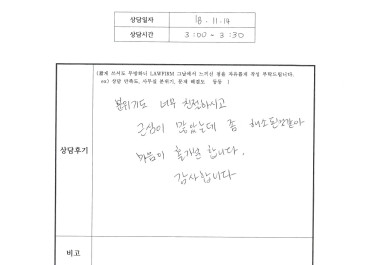 상담일자 18. 11. 14
상담시간 3:00 - 3:30
(짧게 쓰셔도 무방하니 LAWFIRM 그날에서 느끼신 점을 자유롭게 작성 부탁드립니다.
ex) 상담 만족도, 사무실 분위기, 문제 해결도 등등 )
분위기도 너무 친절하시고
근심이 많았는데 좀 해소된것같아
상담후기
마음이 홀가분 합니다.
감사합니다
비고